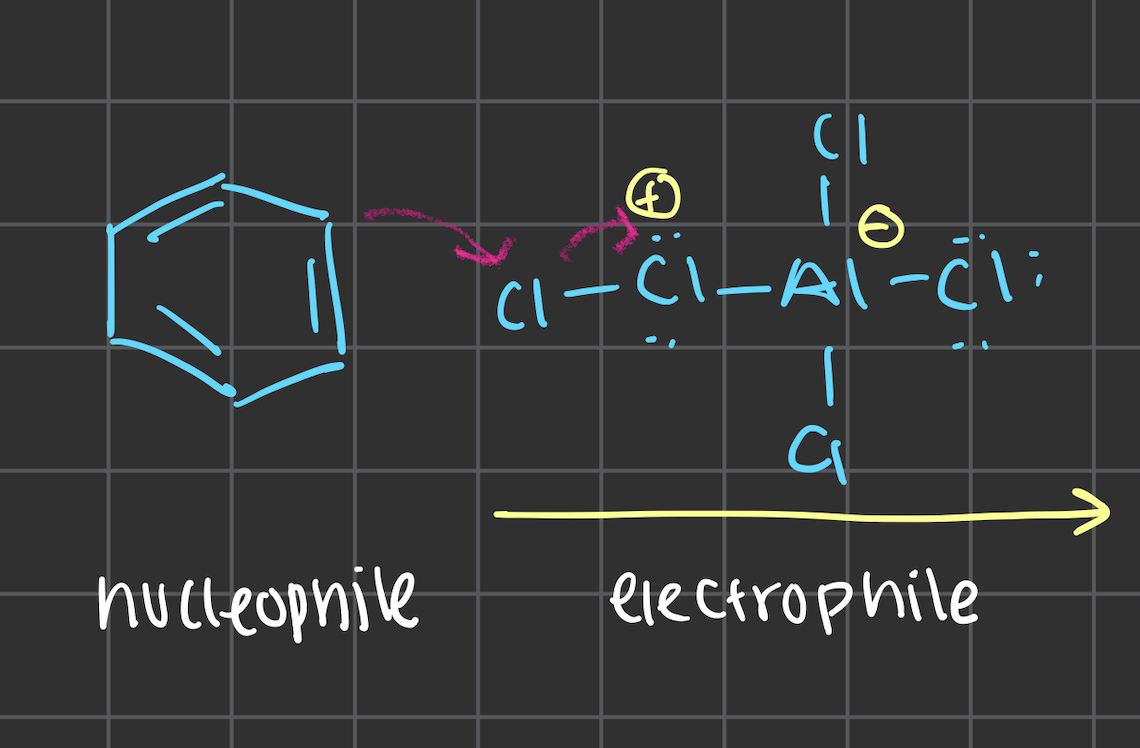 Cl
⊕ ⊖
Cl–Cl–Al–Cl
Cl
nucleophile electrophile